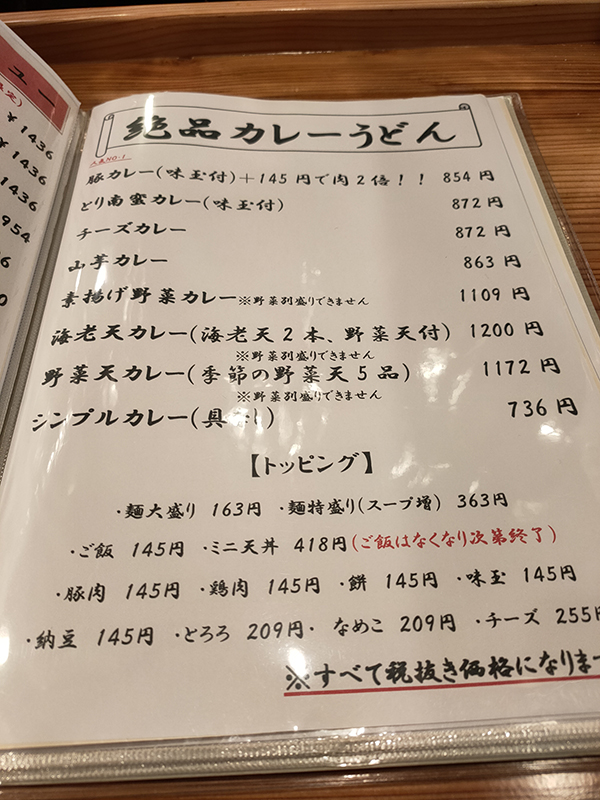 ュー
定)
￥1436
￥1436
1436
954
絶品カレーうどん
人気NO.1
豚カレー(味玉付)+145円で肉2倍！！ 854円
とり南蛮カレー(味玉付) 872円
チーズカレー 872円
山芋カレー 863円
素揚げ野菜カレー※野菜別盛りできません 1109円
海老天カレー(海老天2本、野菜天付) 1200円
※野菜別盛りできません
野菜天カレー(季節の野菜天5品) 1172円
※野菜別盛りできません
シンプルカレー(具なし) 736円
【トッピング】
・麺大盛り 163円 ・麺特盛り(スープ増) 363円
・ご飯 145円 ・ミニ天丼 418円(ご飯はなくなり次第終了)
・豚肉 145円 ・鶏肉 145円 ・餅 145円 ・味玉 145円
・納豆 145円 ・とろろ 209円・ なめこ 209円 ・チーズ 255円
※すべて税抜き価格になります